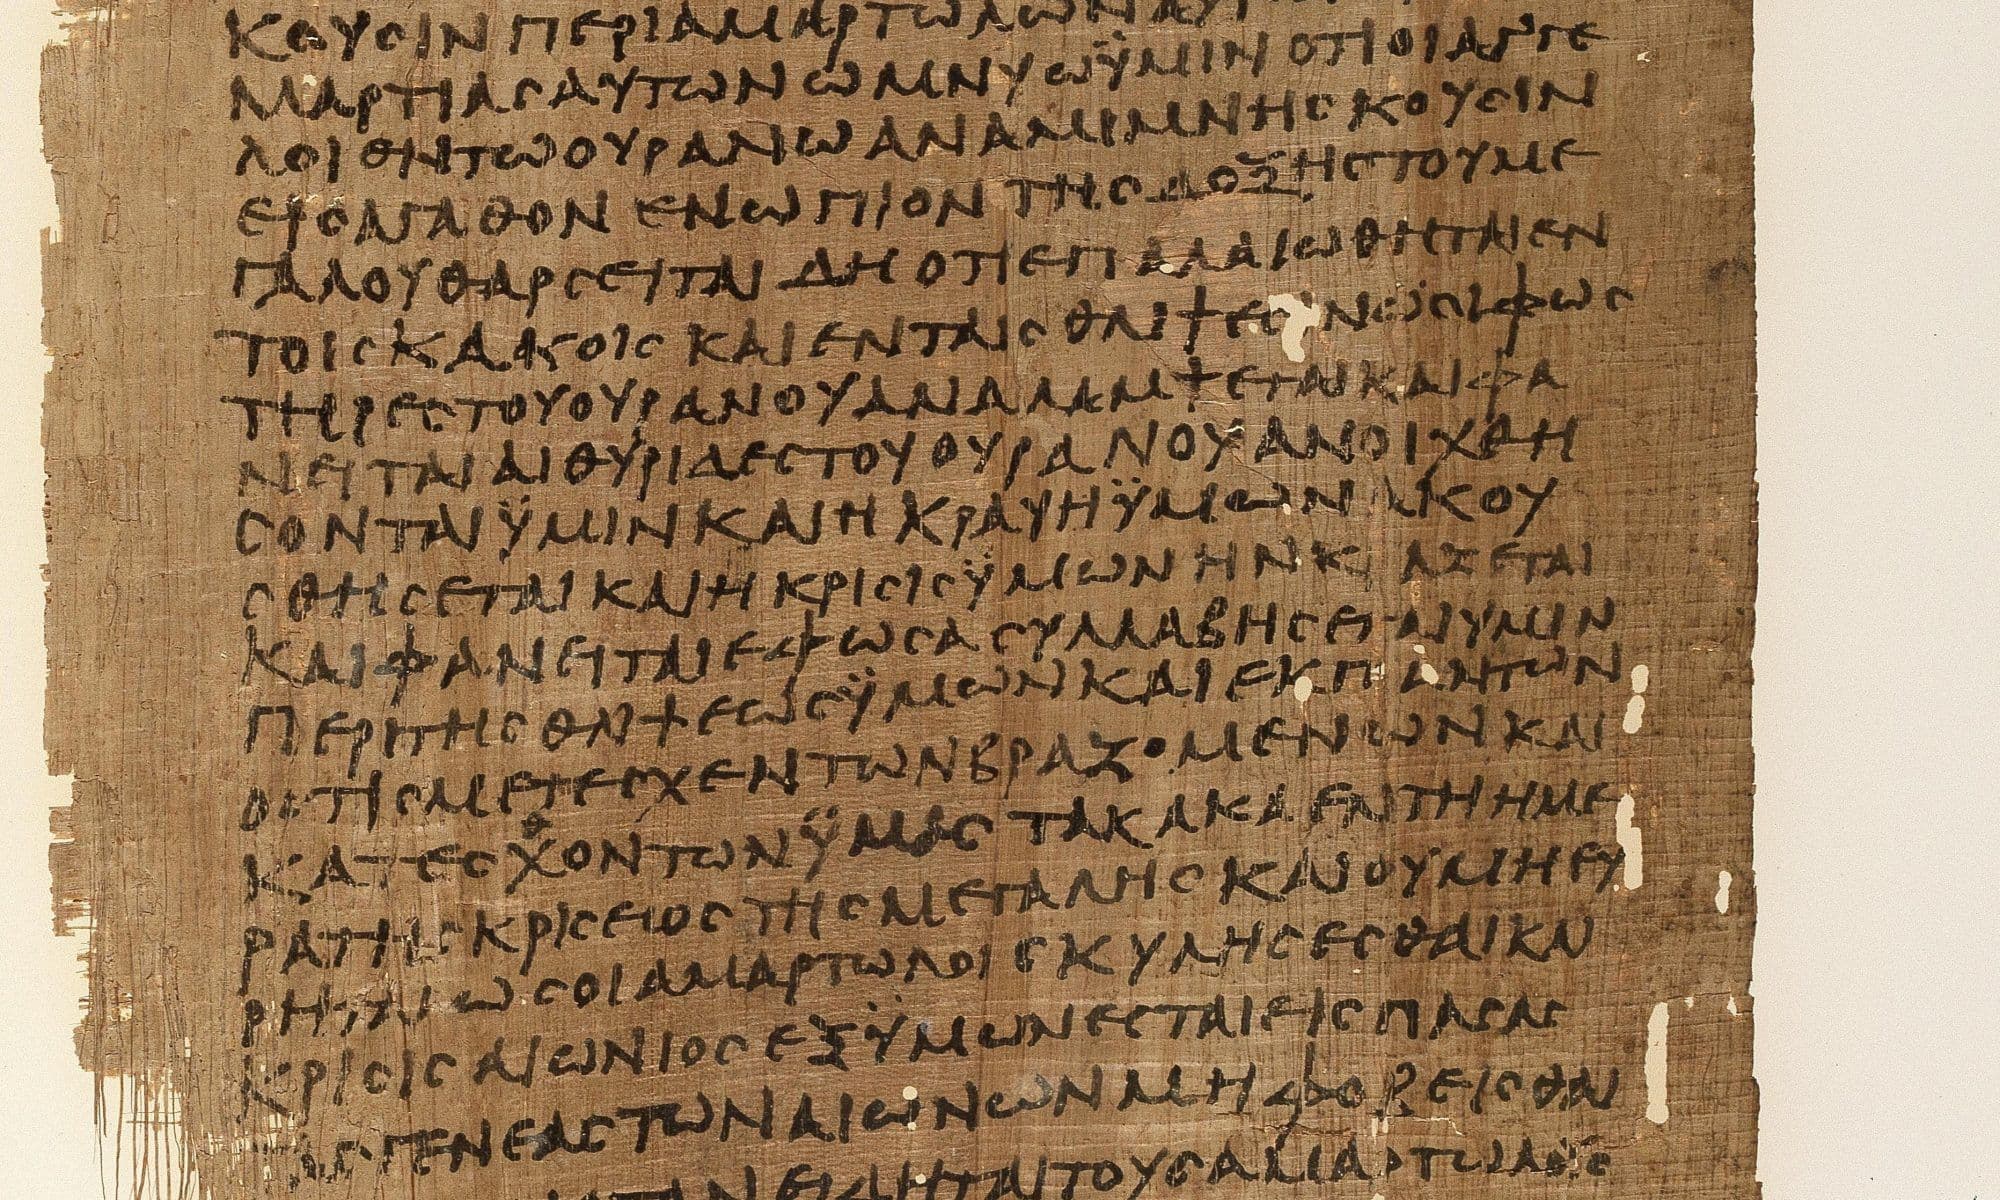 ΚΟΥϹΙΝ ΠΕΡΙ ΑΜΑΡΤΩΛΩΝ
ΜΑΡΤΙΑϹ ΑΥΤΩΝ ΩΜΝΥΩ ΫΜΙΝ ΟΤΙ ΟΙ ΑΓΓΕ
ΛΟΙ ΘΝ ΤΩ ΟΥΡΑΝΩ ΑΝΑΜΙΜΝΗϹΚΟΥϹΙΝ
ΕΙϹ ΑΓΑΘΟΝ ΕΝΩΠΙΟΝ ΤΗϹ ΔΟΞΗϹ ΤΟΥ ΜΕ
ΓΑΛΟΥ ΘΑΡϹΕΙΤΑΙ ΔΗ ΟΤΙ ΕΠΑΛΑΙΩΘΗΤΑΙ ΕΝ
ΤΟΙϹ ΚΑΚΟΙϹ ΚΑΙ ΕΝ ΤΑΙϹ ΘΛΙΨΕϹΙΝ ΩϹΙ ΦΩϹ
ΤΗΡΕϹ ΤΟΥ ΟΥΡΑΝΟΥ ΑΝΑΛΑΜΨΕΤΑΙ ΚΑΙ ΦΑ
ΝΕΙΤΑΙ ΑΙ ΘΥΡΙΔΕϹ ΤΟΥ ΟΥΡΑΝΟΥ ΑΝΟΙΧΘΗ
ϹΟΝΤΑΙ ΫΜΙΝ ΚΑΙ Η ΚΡΑΥΗ ΫΜΩΝ ΑΚΟΥ
ϹΘΗϹΕΤΑΙ ΚΑΙ Η ΚΡΙϹΙϹ ΫΜΩΝ ΗΝ ΚΑΖΕΤΑΙ
ΚΑΙ ΦΑΝΕΙΤΑΙ ΕΦ ΩϹΑ ϹΥΛΛΑΒΗϹΕΤΑΙ ΥΜΙΝ
ΠΕΡΙ ΤΗϹ ΘΛΙΨΕΩϹ ΫΜΩΝ ΚΑΙ ΕΚ ΠΑΝΤΩΝ
ΟϹΤΙϹ ΜΕΤΕϹΧΕΝ ΤΩΝ ΒΡΑΖΟΜΕΝΩΝ ΚΑΙ
ΚΑΤΕϹΧΟΝΤΩΝ ΫΜΑϹ ΤΑ ΚΑΚΑ ΕΝ ΤΗ ΗΜΕ
ΡΑ ΤΗϹ ΚΡΙϹΕΙΟϹ ΤΗϹ ΜΕΓΑΛΗϹ ΚΑΙ ΟΥ ΜΗ ΕΥ
ΡΗΤΑΙ ΩϹ ΟΙ ΑΜΑΡΤΩΛΟΙ ϹΚΥΛΗϹΕϹΘΑΙ ΚΑΙ
ΚΡΙϹΙϹ ΑΙΩΝΙΟϹ ΕΞ ΫΜΩΝ ΕϹΤΑΙ ΕΙϹ ΠΑϹΑϹ
ΤΑϹ ΓΕΝΕΑϹ ΤΩΝ ΑΙΩΝΩΝ ΜΗ ΦΟΒΕΙϹΘΑΙ
ΤΟΥϹ ΑΜΑΡΤΩΛΟΥϹ